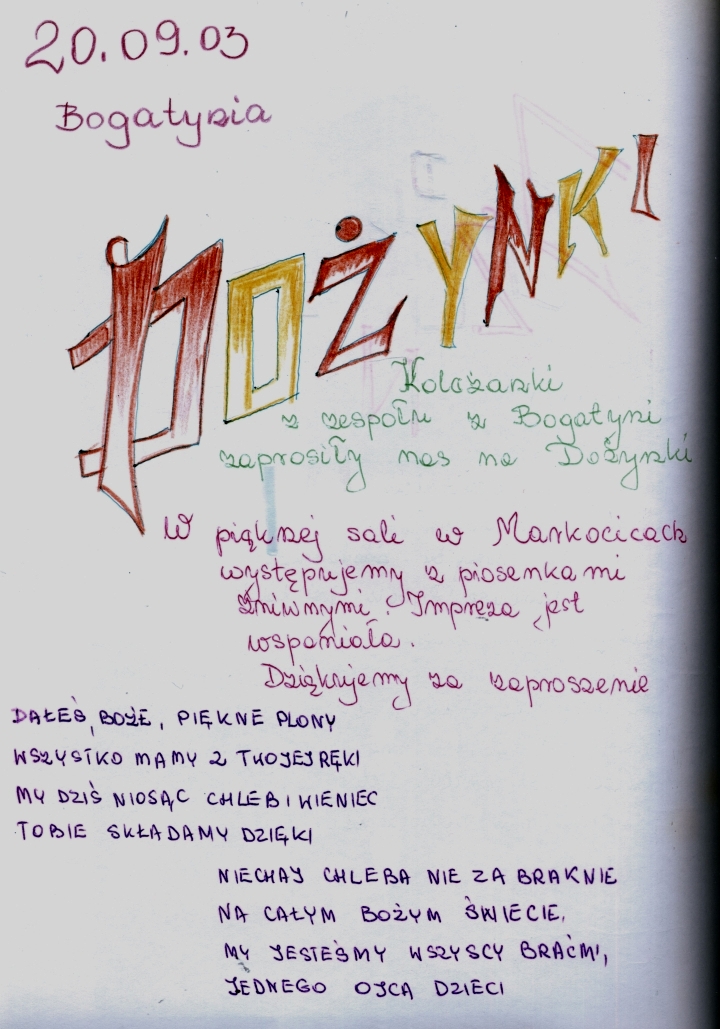 20.09.03
Bogatynia
DOŻYNKI
Koleżanki
z zespołu z Bogatyni
zaprosiły nas na Dożynki
W pięknej sali w Markocicach
występujemy z piosenkami
żniwnymi. Impreza jest
wspaniała.
Dziękujemy za zaproszenie
DAŁEŚ, BOŻE, PIĘKNE PLONY
WSZYSTKO MAMY Z TWOJEJ RĘKI
MY DZIŚ NIOSĄC CHLEB I WIENIEC
TOBIE SKŁADAMY DZIĘKI
NIECHAJ CHLEBA NIE ZA BRAKNIE
NA CAŁYM BOŻYM ŚWIECIE,
MY JESTEŚMY WSZYSCY BRAĆMI,
JEDNEGO OJCA DZIECI